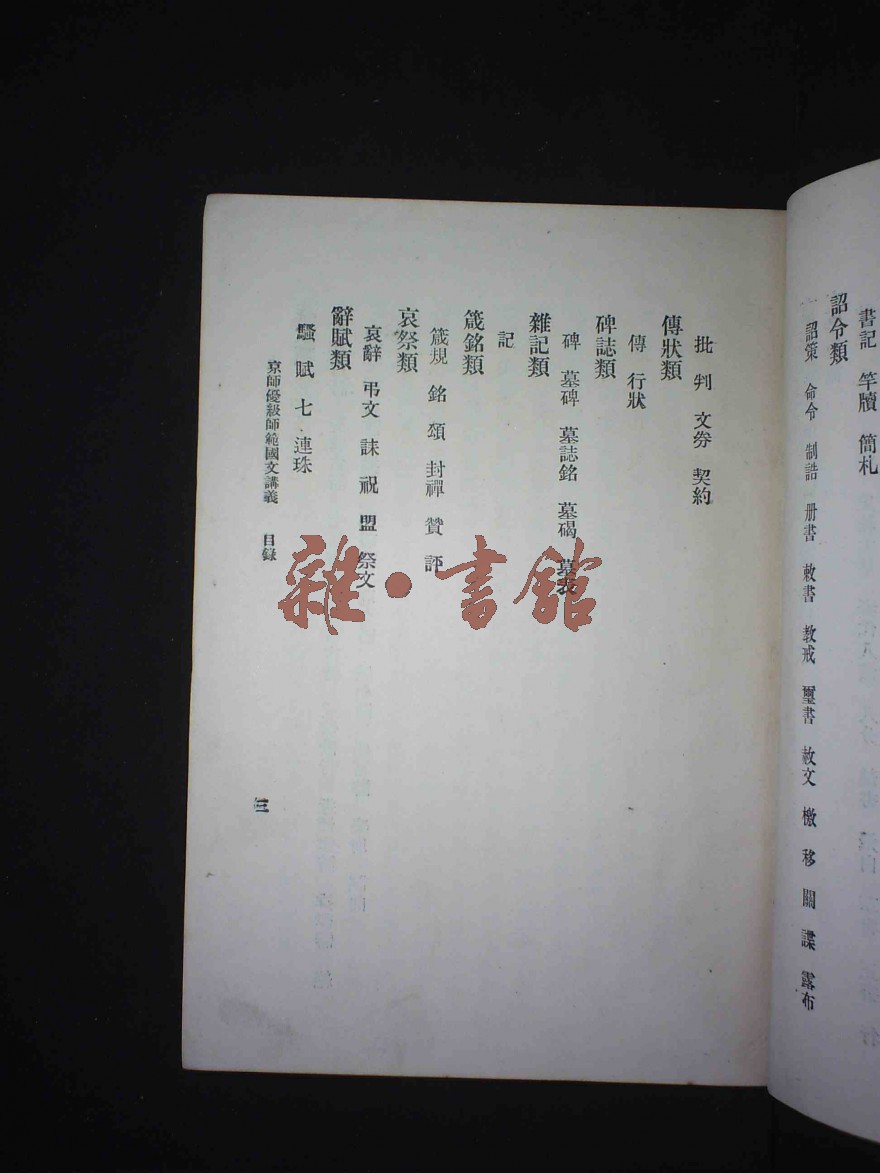 書記 竿牘 簡札
詔令類
詔策 命令 制誥 册書 敕書 教戒 璽書 赦文 檄 移 關 諜 露布
批 判 文券 契約
傳狀類
傳 行狀
碑誌類
碑 墓碑 墓誌銘 墓碣 墓表
雜記類
記
箴銘類
箴規 銘 頌 封禪 贊 評
哀祭類
哀辭 弔文 誄 祝 盟 祭文
辭賦類
騷 賦 七 連珠
京師優級師範國文講義 目錄
三
雜·書館